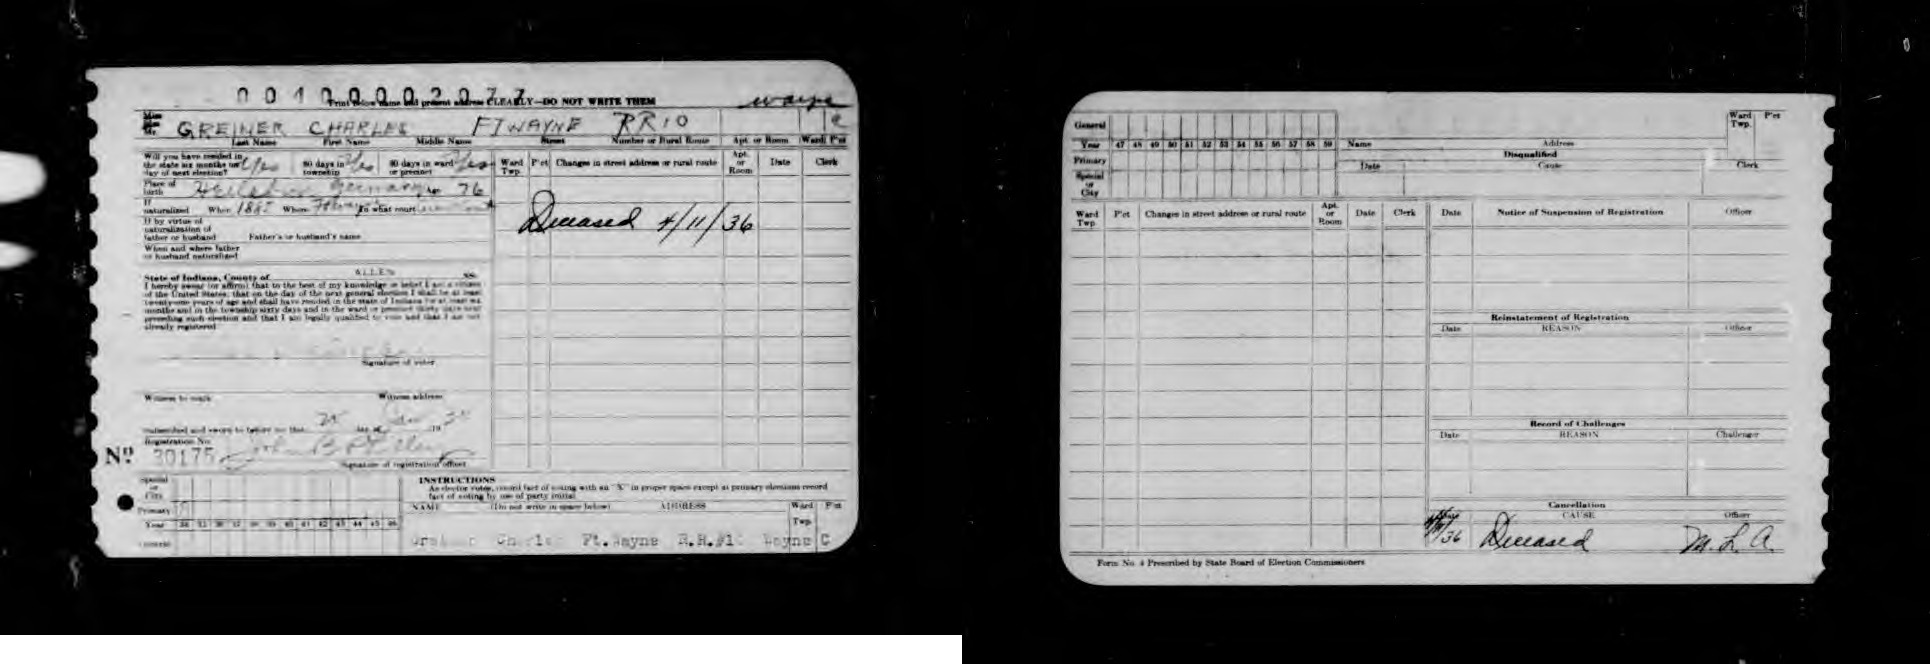 0 0 1 0 0 0 0 2 0 7 7
Print below name and present address CLEARLY—DO NOT WRITE THEM
wayne
Miss
Mrs.
Mr. GREINER CHARLES FTWAYNE RR10
Last Name First Name Middle Name Street Number or Rural Route Apt. or Room Ward P'ct
Will you have resided in the state six months on day of next election? Yes 60 days in township Yes 30 days in ward or precinct Yes
Ward Twp. P'ct Changes in street address or rural route Apt. or Room Date Clerk
Place of birth Germany Age 76
If naturalized When Where Ftwayne In what court
Deceased 4/11/36
If by virtue of naturalization of father or husband Father's or husband's name
When and where father or husband naturalized
State of Indiana, County of ALLEN ss.
I hereby swear (or affirm) that to the best of my knowledge or belief I am a citizen
of the United States; that on the day of the next general election I shall be at least
twenty-one years of age and shall have resided in the state of Indiana for at least six
months and in the township sixty days and in the ward or precinct thirty days next
preceding such election and that I am legally qualified to vote and that I am not
already registered
Signature of voter
Witness to mark Witness address
Subscribed and sworn to before me this 25 day of Jan 19
Registration No.
No. 30175
Signature of registration officer
Special or City
Primary
Year 34 35 36 37 38 39 40 41 42 43 44 45 46
General
INSTRUCTIONS
As elector votes, record fact of voting with an "X" in proper space except at primary elections record
fact of voting by use of party initial
NAME (Do not write in space below) ADDRESS Ward Twp. P'ct
Greiner Charles Ft.Wayne R.R.#10 Wayne C
General
Year 47 48 49 50 51 52 53 54 55 56 57 58 59
Primary
Special or City
Ward Twp. P'ct
Name Address
Disqualified
Date Cause Clerk
Ward Twp. P'ct Changes in street address or rural route Apt. or Room Date Clerk
Date Notice of Suspension of Registration Officer
Reinstatement of Registration
Date REASON Officer
Record of Challenges
Date REASON Challenger
Cancellation
CAUSE Officer
/36 Deceased M. L. A.
Form No. 4 Prescribed by State Board of Election Commissioners